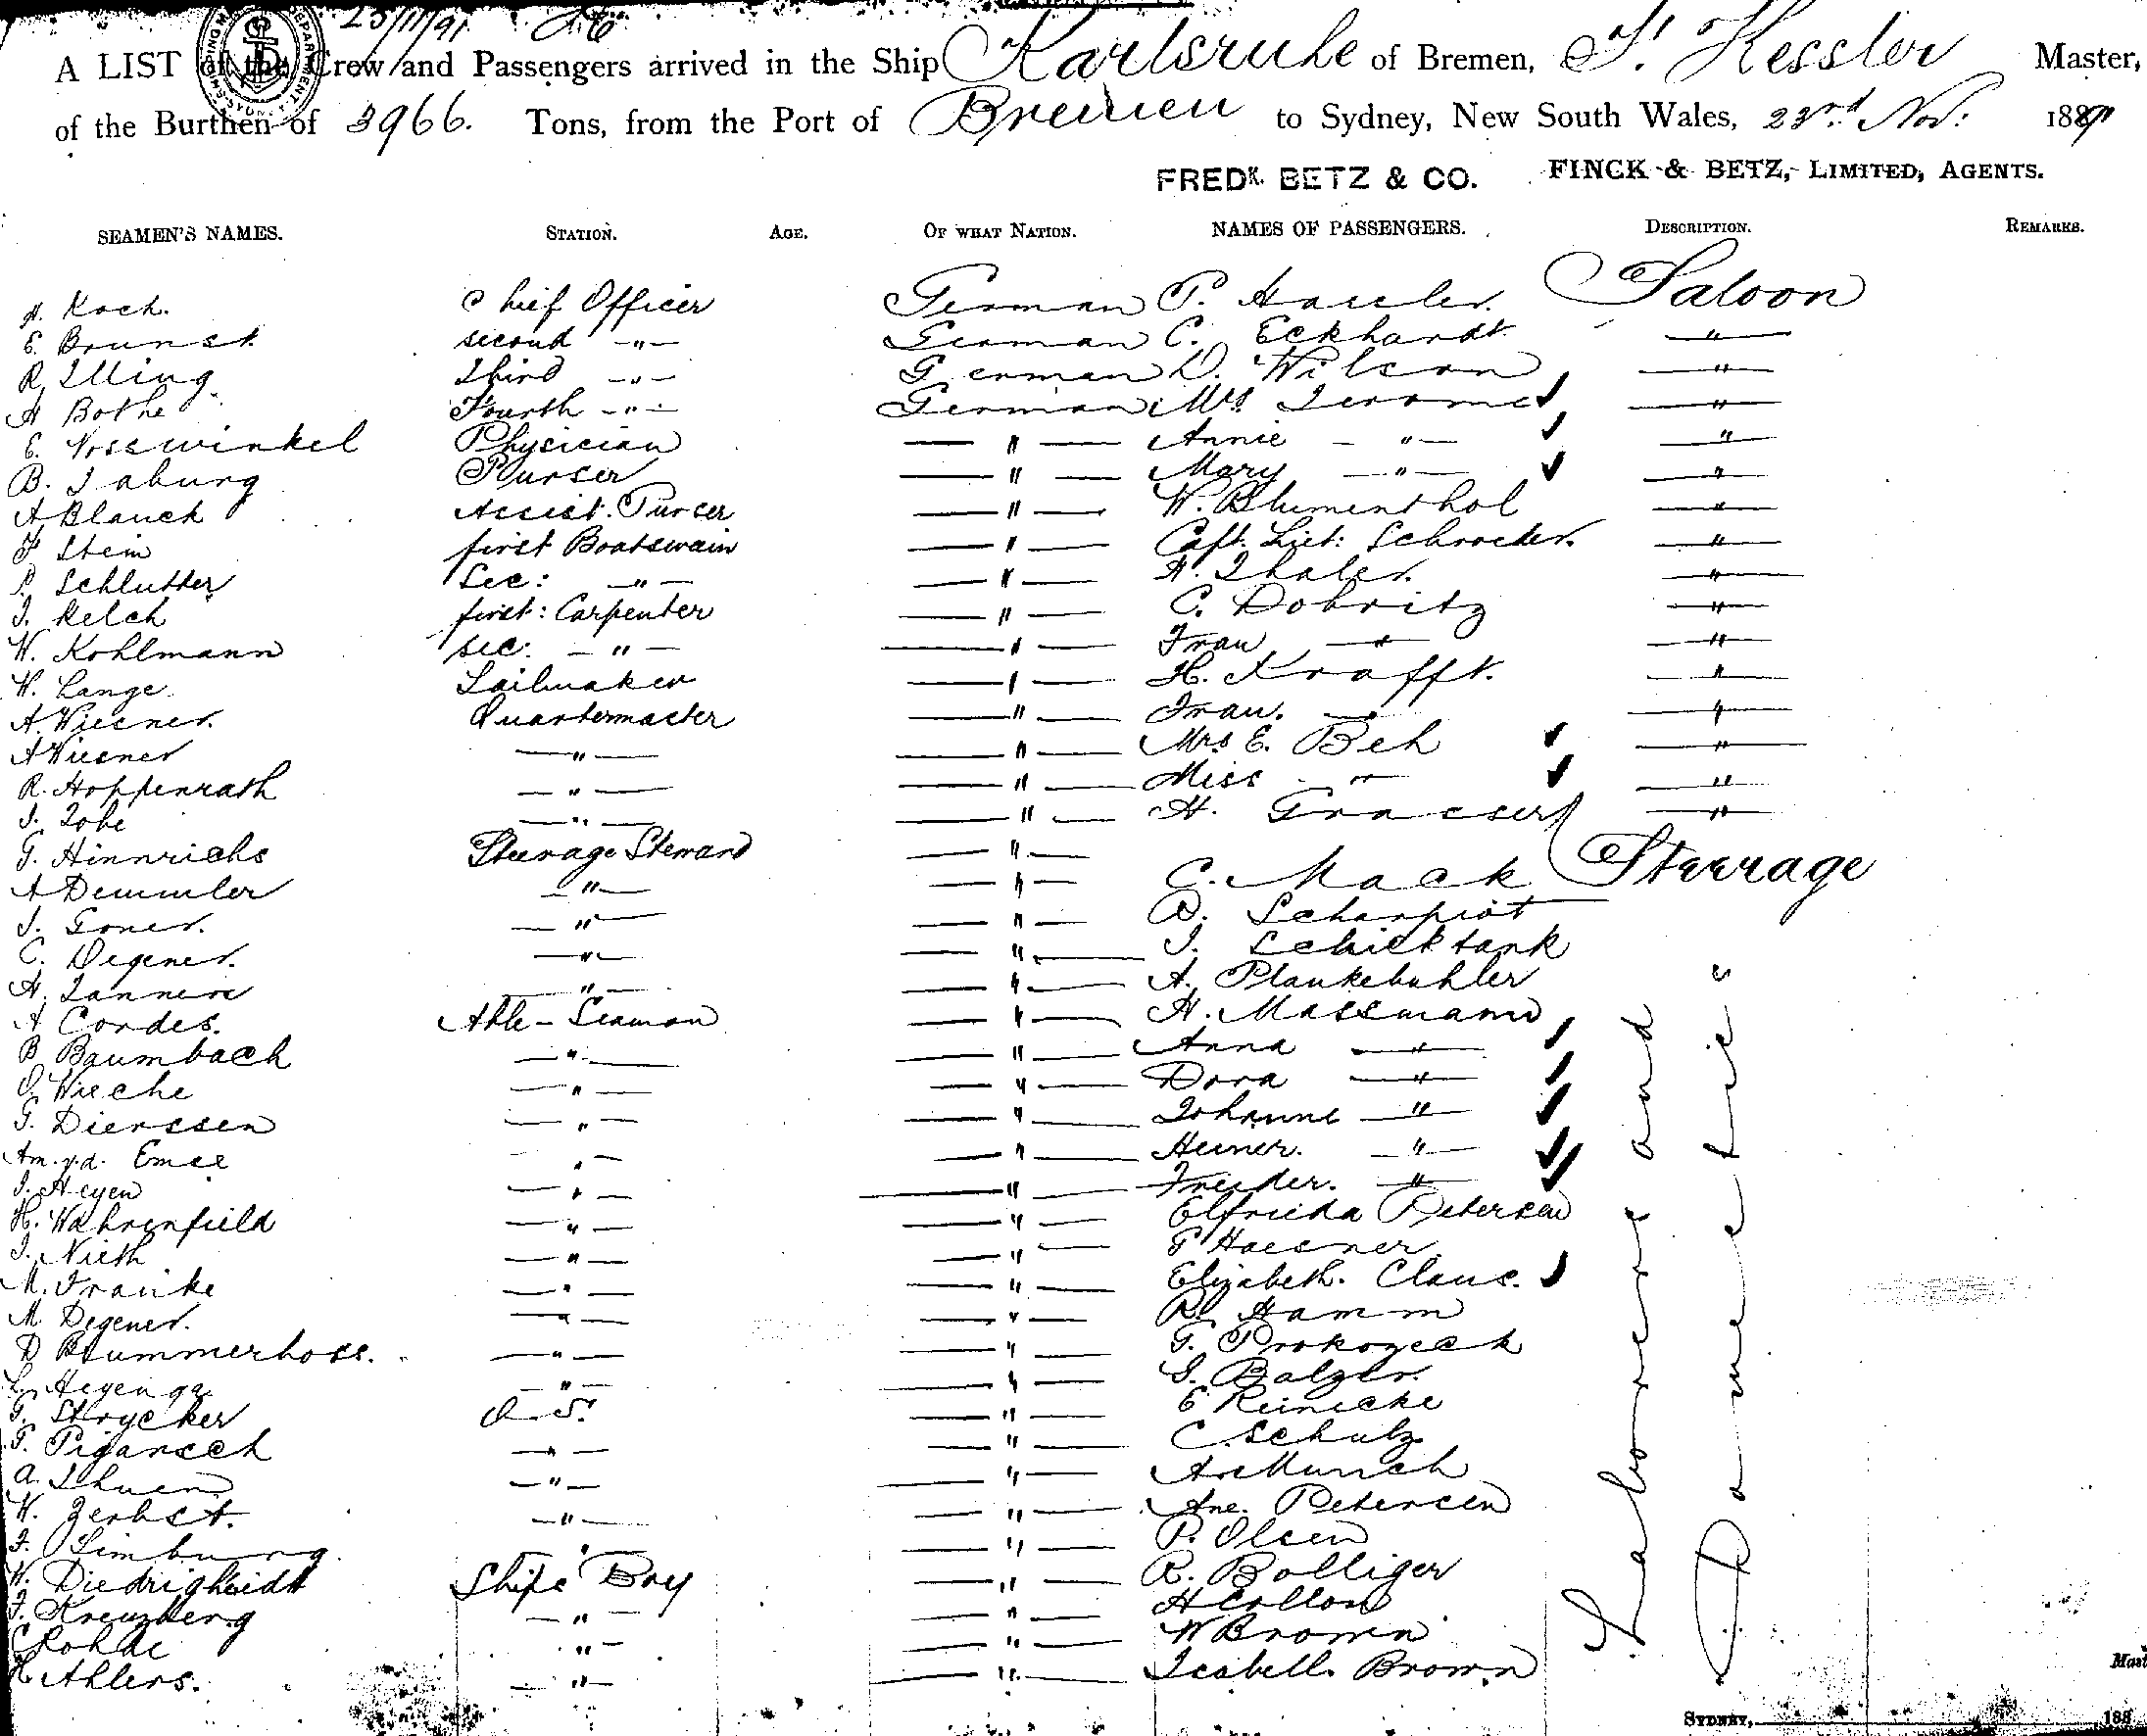 23/11/91
A LIST of the Crew and Passengers arrived in the Ship Karlsruhe of Bremen, Kessler Master,
of the Burthen of 3966. Tons, from the Port of Bremen to Sydney, New South Wales, 23rd Nov: 1891
FREDK. BETZ & CO. FINCK & BETZ, LIMITED, AGENTS.
SEAMEN'S NAMES. STATION. AGE. OF WHAT NATION. NAMES OF PASSENGERS. DESCRIPTION. REMARKS.
Koch. Chief Officer German P. Saloon
E. second -"- German C. Eckhardt "
R. Illing Third -"- German D. Wilson "
A Bothe Fourth -"- German Mrs Jerome "
E. Nosswinkel Physician " Annie - " - "
B. Purser " Mary - " - "
A Blanck Assist. Purser " W. Blumenthol "
F Stein first Boatswain " Capt. Schroeder. "
Schlutter Sec: -"- " A. Thaler. "
J. Kelch first: Carpenter " C. Dobritz "
W. Kohlmann sec: -"- " Frau " "
W. Lange Sailmaker " H. Krafft. "
A. Wiesner. Quartermaster " Frau. "
A Wiesner " " Mrs E. Beh "
R. Hoppenrath " " Miss " "
J. Tobe " " H. "
G. Hinnrichs Steerage Steward "
A Demmler " " C. Mack Steerage
J. " "
C. Degener. " " J. Schicktank
A. " " A. Plankebuhler
A Cordes. Able-Seaman " H. Massmann
B Baumbach " " Anna "
O. Wieche " " Dora "
G. Dierssen " " Johanne "
Am. v.d. Emse " " Heiner. "
J. Heyen " " Frieder. "
H. Wahrenfield " " Elfrieda Petersen
J. Nieth " " Haesner
M. Franke " " Elizabeth. Claus.
M. Degener. " " R. Hamm
D " " G. Prokozeck
Heyenga " " Balzer.
G. Strycker O.S. " E Reinicke
" " C. Schulz
A. Thuen " " A. Munch
W. Zerbst. " " Ane. Petersen
F. Limburg. " " P. Olsen
W. Ships Boy " R. Bolliger
F. Kreuzberg " " H
C Rohde " " W Brown
H Ahlers. " " Isabella Brown
Laborers and
Domestics
Mast
SYDNEY, 188